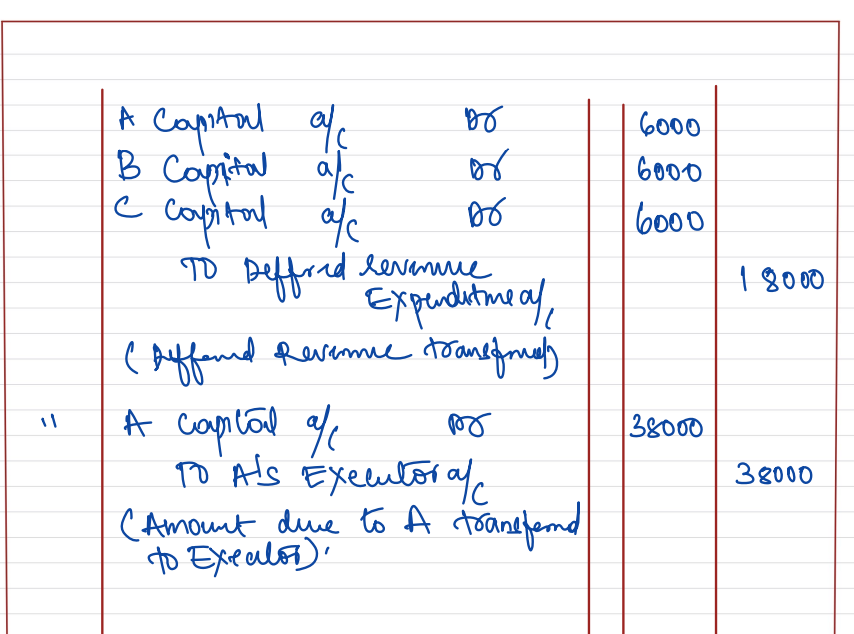 A Capital a/c Dr 6000
B Capital a/c Dr 6000
C Capital a/c Dr 6000
TO Deffered Revenue
Expenditure a/c 18000
(Deffered Revenue transferred)
" A capital a/c Dr 38000
TO A's Executor a/c 38000
(Amount due to A transferred
to Executor).